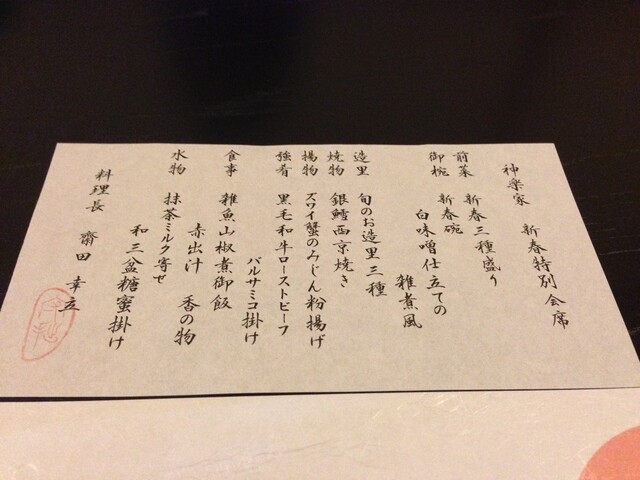 神楽家 新春特別会席
前菜 新春三種盛り
御椀 新春碗
白味噌仕立ての
雑煮風
造里 旬のお造里三種
焼物 銀鱈西京焼き
揚物 ズワイ蟹のみじん粉揚げ
強肴 黒毛和牛ローストビーフ
バルサミコ掛け
食事 雑魚山椒煮御飯
赤出汁 香の物
水物 抹茶ミルク寄せ
和三盆糖蜜掛け
料理長 齋田幸立